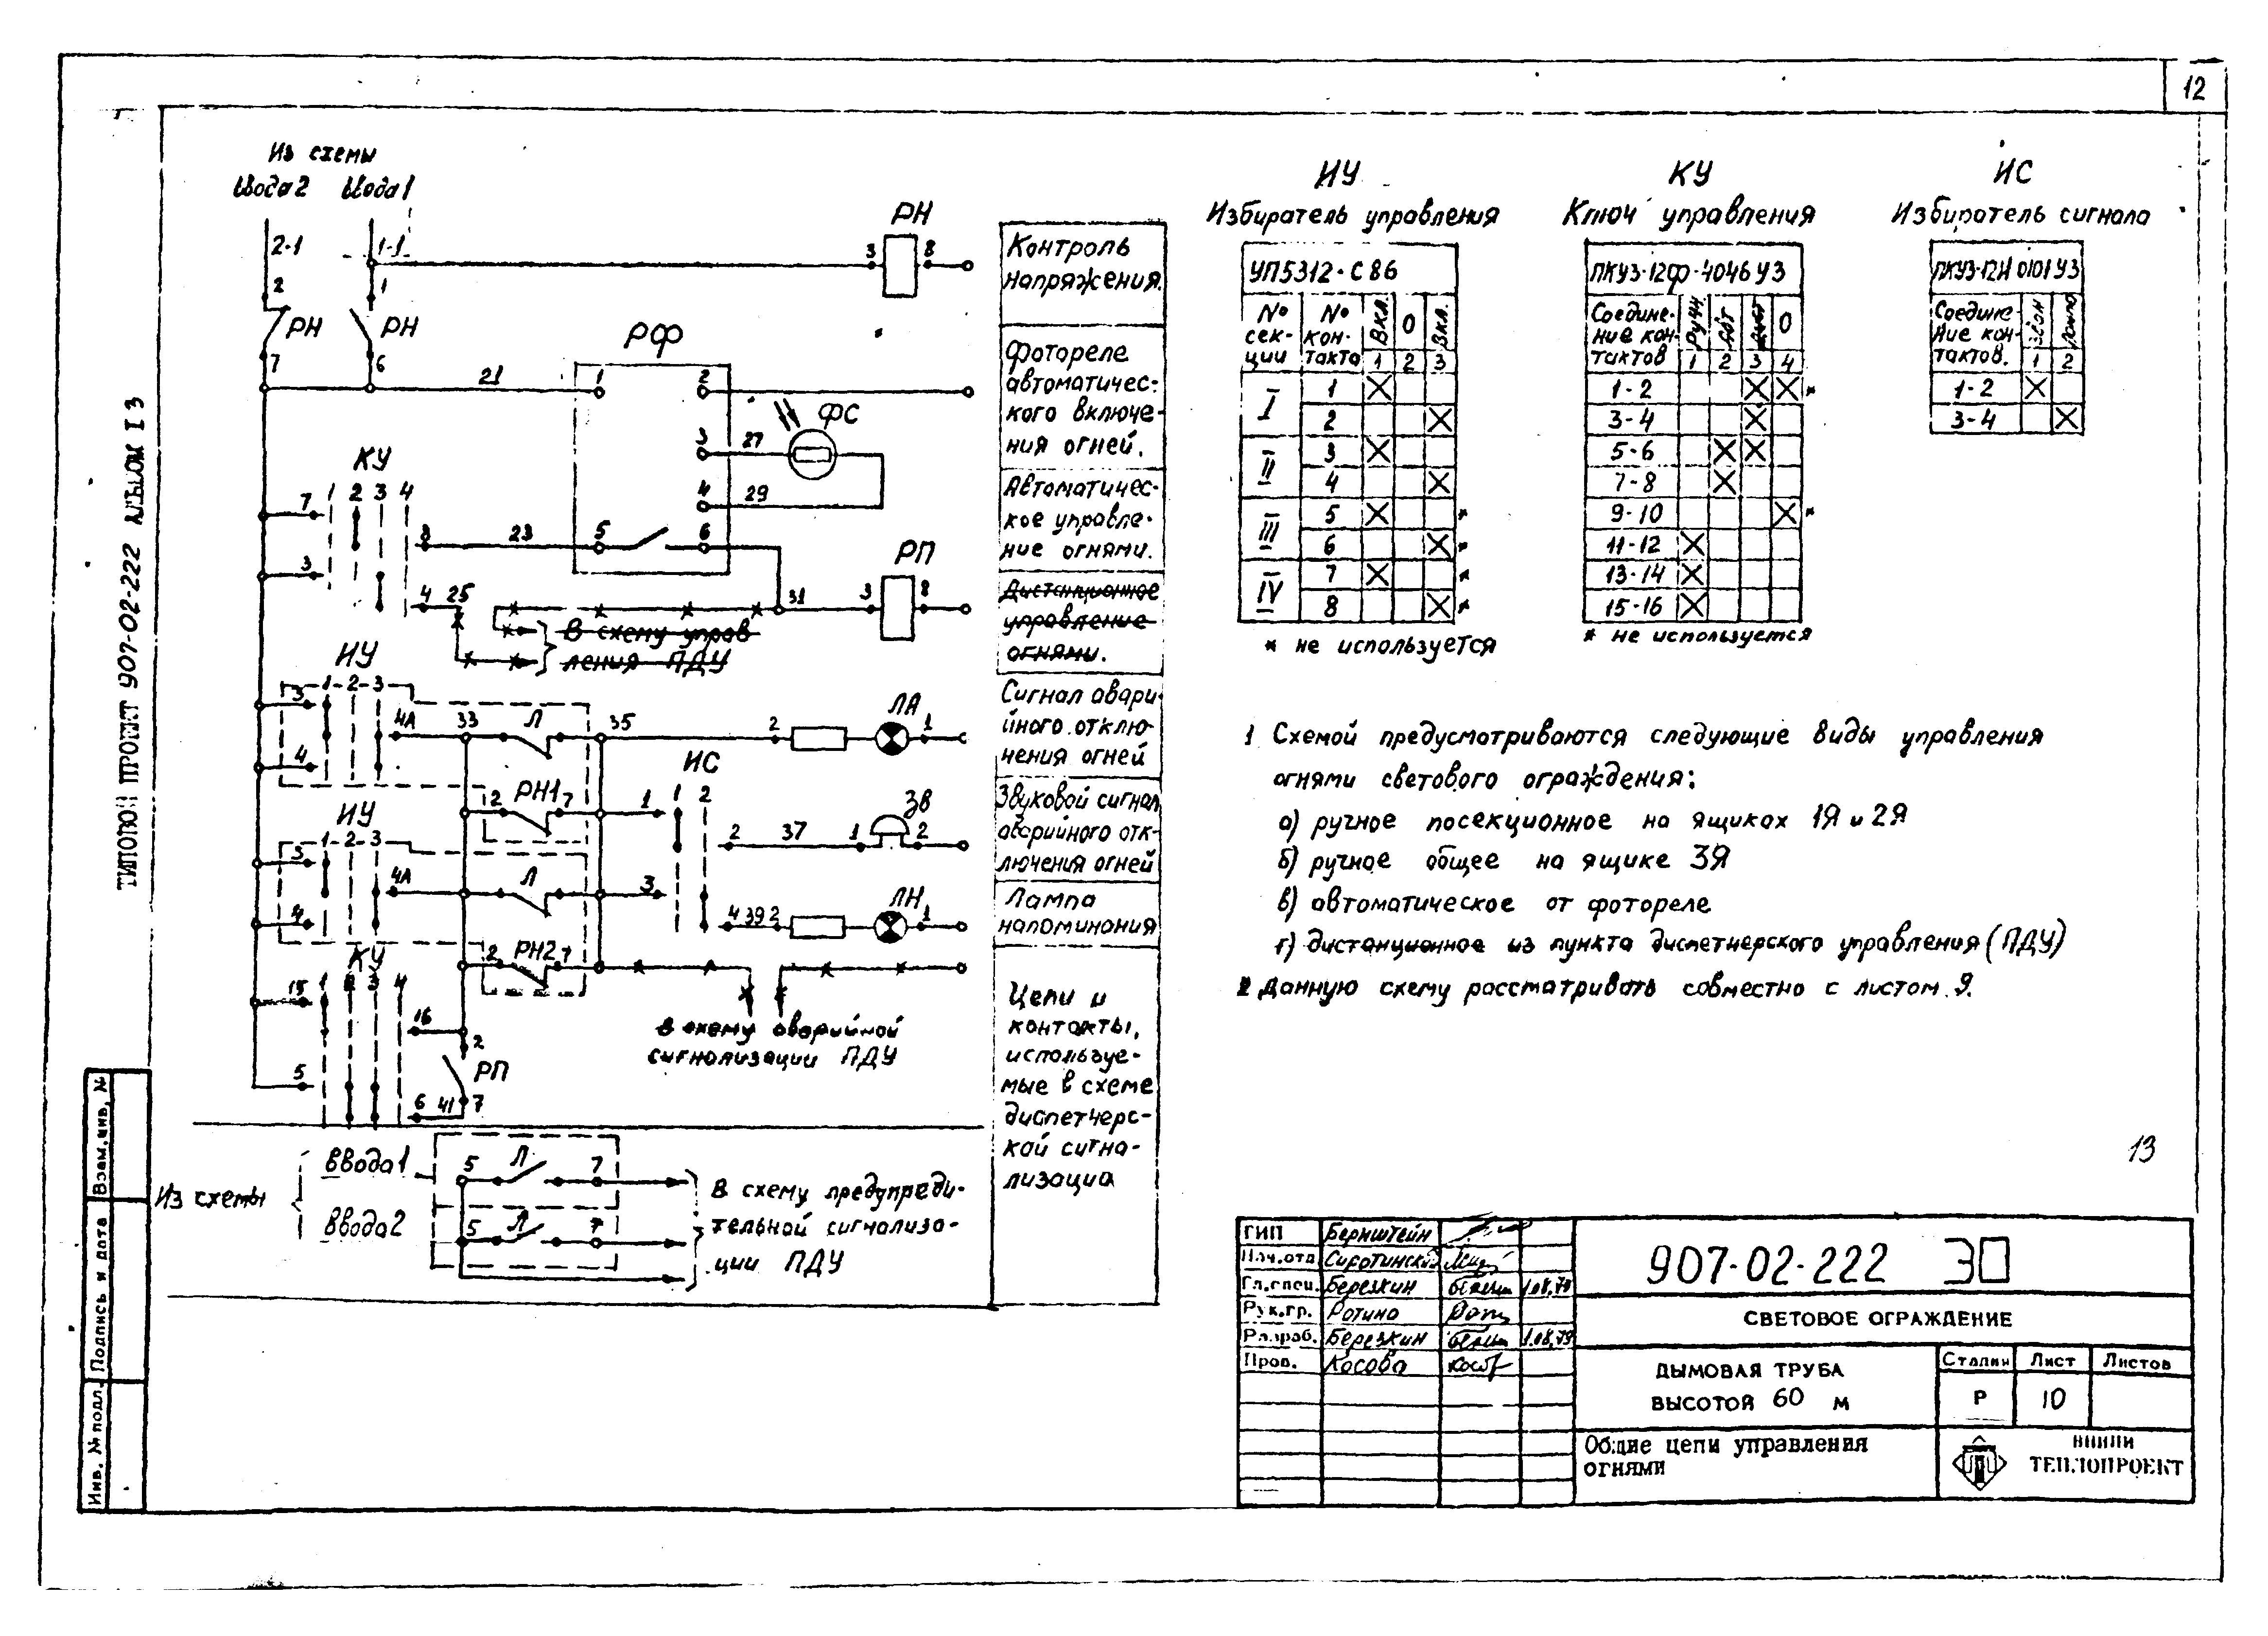 12
ТИПОВОЙ ПРОЕКТ 907-02-222 АЛЬБОМ I 3
Из схемы
Ввода 2 Ввода 1
2-1
1-1
РН
3
8
2
1
РН
РН
7
6
21
РФ
1
2
3
27
ФС
4
29
КУ
1 2 3 4
7
8
23
5
6
3
4
25
31
РП
3
8
В схему управ
ления ПДУ
ИУ
1-2-3
3
4А
33
Л
35
2
ЛА
1
4
ИС
1 2
2
РН1
7
1
2
37
1
ЗВ
2
ИУ
1-2-3
3
4А
Л
3
4
4 39 2
ЛН
1
КУ
2
РН2
7
1 2 3 4
15
16
2
РП
5
6
41
7
В схему аварийной
сигнализации ПДУ
Из схемы
Ввода 1
5
Л
7
Ввода 2
5
Л
7
В схему предупреди-
тельной сигнализа-
ции ПДУ
Контроль
напряжения.
Фотореле
автоматичес-
кого включе-
ния огней.
Автоматичес-
кое управле-
ние огнями.
Дистанционное
управление
огнями.
Сигнал авари-
йного отклю-
чения огней
Звуковой сигнал
аварийного отк-
лючения огней
Лампа
напоминания
Цепи и
контакты,
используе-
мые в схеме
диспетчерс-
кой сигна-
лизации
ИУ
Избиратель управления
УП5312-С86
№ сек-ции № кон-такта Вкл. 0 Вкл.
1 2 3
I 1 X
2 X
II 3 X
4 X
III 5 X *
6 X *
IV 7 X *
8 X *
* не используется
КУ
Ключ управления
ПКУ3-12Ф-4046У3
Соедине-ние кон-тактов Ручн. Авт Дист 0
1 2 3 4
1-2 X X *
3-4 X
5-6 X X
7-8 X
9-10 X *
11-12 X
13-14 X
15-16 X
* не используется
ИС
Избиратель сигнала
ПКУ3-12И 0101У3
Соедине-ние кон-тактов. Звон
1 2
1-2 X
3-4 X
1 Схемой предусматриваются следующие виды управления
огнями светового ограждения:
а) ручное посекционное на ящиках 1Я и 2Я
б) ручное общее на ящике 3Я
в) автоматическое от фотореле
г) дистанционное из пункта диспетчерского управления (ПДУ)
2 Данную схему рассматривать совместно с листом 9.
13
ГИП Бернштейн
Нач.отд Сиротинский
Гл.спец. Березкин 1.08.79
Рук.гр. Ротина
Разраб. Березкин 1.08.79
Пров. Косова
907-02-222 ЭО
СВЕТОВОЕ ОГРАЖДЕНИЕ
ДЫМОВАЯ ТРУБА
ВЫСОТОЙ 60 м
Стадия Лист Листов
Р 10
Общие цепи управления
огнями
ВНИПИ
ТЕПЛОПРОЕКТ
Инв. № подл. Подпись и дата Взам.инв. №